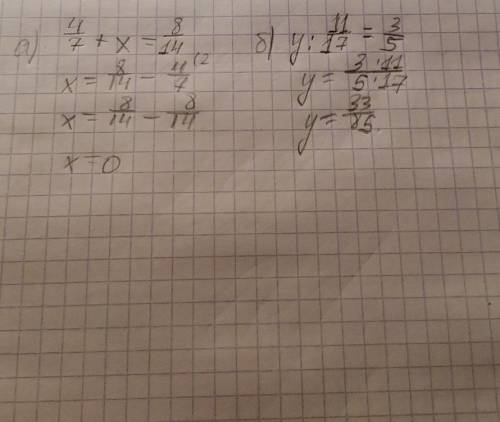 а) 4/7 + x = 8/14
x = 8/14 - 4/7 (2
x = 8/14 - 8/14
x = 0
б) y : 11/17 = 3/5
y = 3·11/5·17
y = 33/85